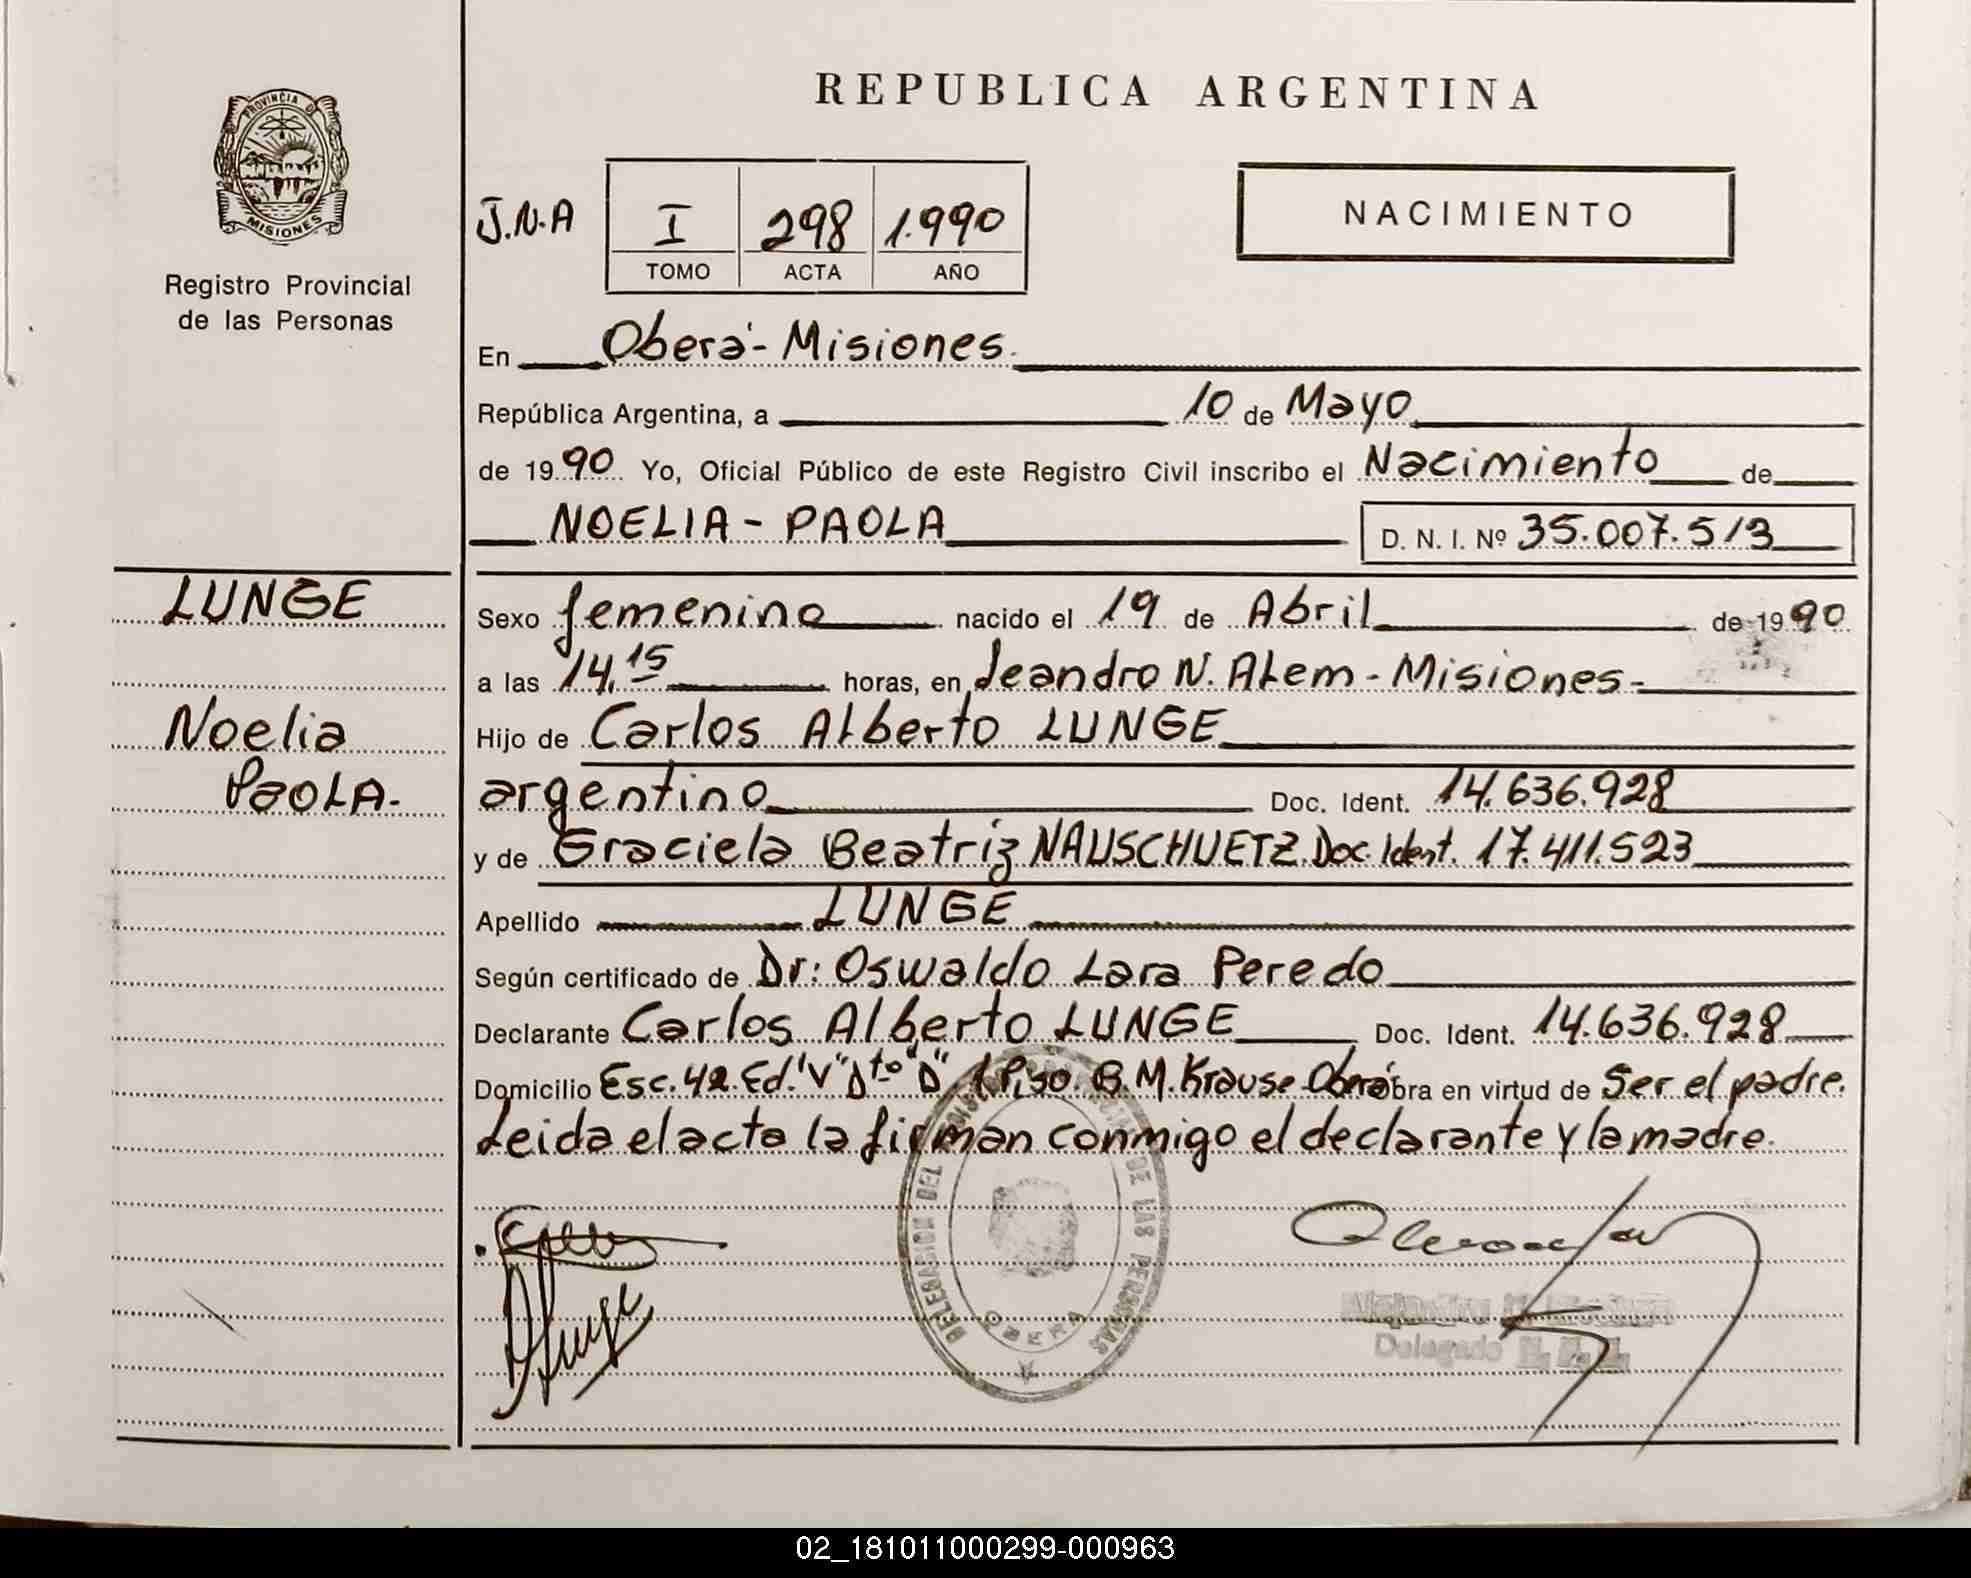 REPUBLICA ARGENTINA
PROVINCIA D
MISIONES
Registro Provincial
de las Personas
J.N.A
I 298 1.990
TOMO ACTA AÑO
NACIMIENTO
En Oberá - Misiones.
República Argentina, a 10 de Mayo
de 1990 Yo, Oficial Público de este Registro Civil inscribo el Nacimiento de
NOELIA - PAOLA D. N. I. Nº 35.007.513
LUNGE
Noelia
PAOLA.-
Sexo femenino nacido el 19 de Abril de 1990
a las 14,15 horas, en Leandro N. ALem - Misiones -
Hijo de Carlos Alberto LUNGE
argentino Doc. Ident. 14.636.928
y de Graciela Beatriz NAUSCHUETZ. Doc. Ident. 17.411.523
Apellido LUNGE
Según certificado de Dr: Oswaldo Lara Peredo
Declarante Carlos Alberto LUNGE Doc. Ident. 14.636.928
Domicilio Esc. 42. Ed. "V" Dto "D" 1 Piso. B. M. Krause Oberá obra en virtud de Ser el padre.
Leida el acta la firman conmigo el declarante y la madre.
DELEGACION DEL DE LAS PERSONAS
OBERA
Delegado
02_181011000299-000963